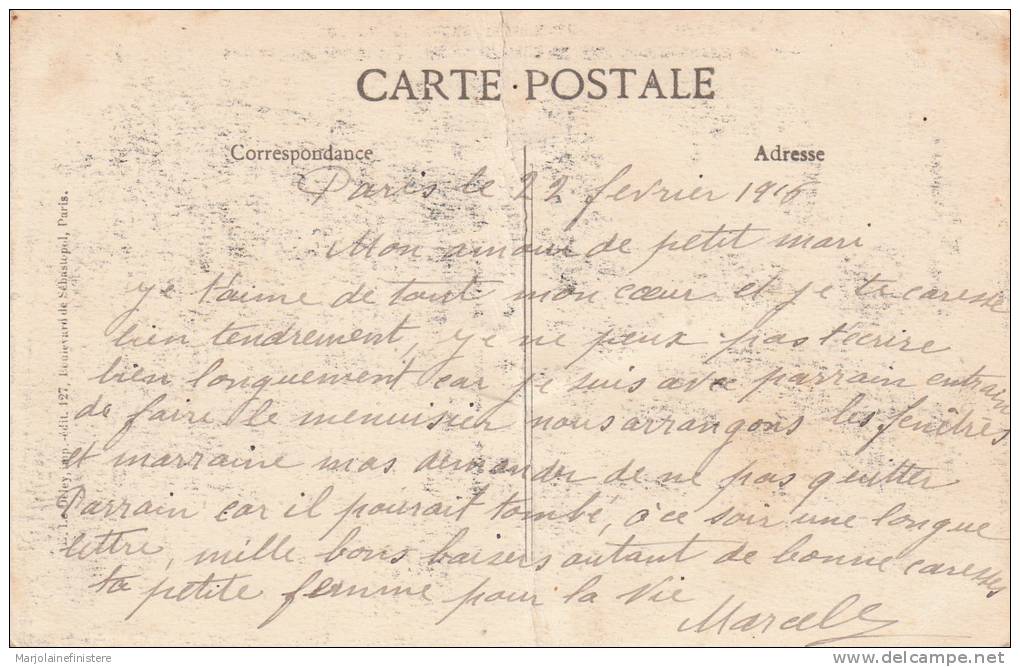 CARTE POSTALE
Correspondance
Adresse
Paris le 22 fevrier 1916
Mon amour de petit mari
je t'aime de tout mon cœur et je te caresse
bien tendrement, je ne peux pas t'écrire
bien longuement car je suis avec parrain entrain
de faire le menuisier nous arrangons les fenêtres
et marraine mas demander de ne pas quitter
Parrain car il pourait tombé, à ce soir une longue
lettre, mille bons baisers autant de bonne caresses
ta petite femme pour la vie
Marcelle
imp.-édit. 127, Boulevard de Sébastopol, Paris.
Marjolainefinistere
delcampe.net